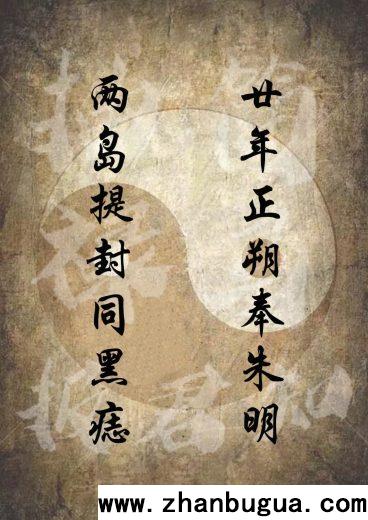 廿年正朔奉朱明
两岛提封同黑痣
www.zhanbugua.com